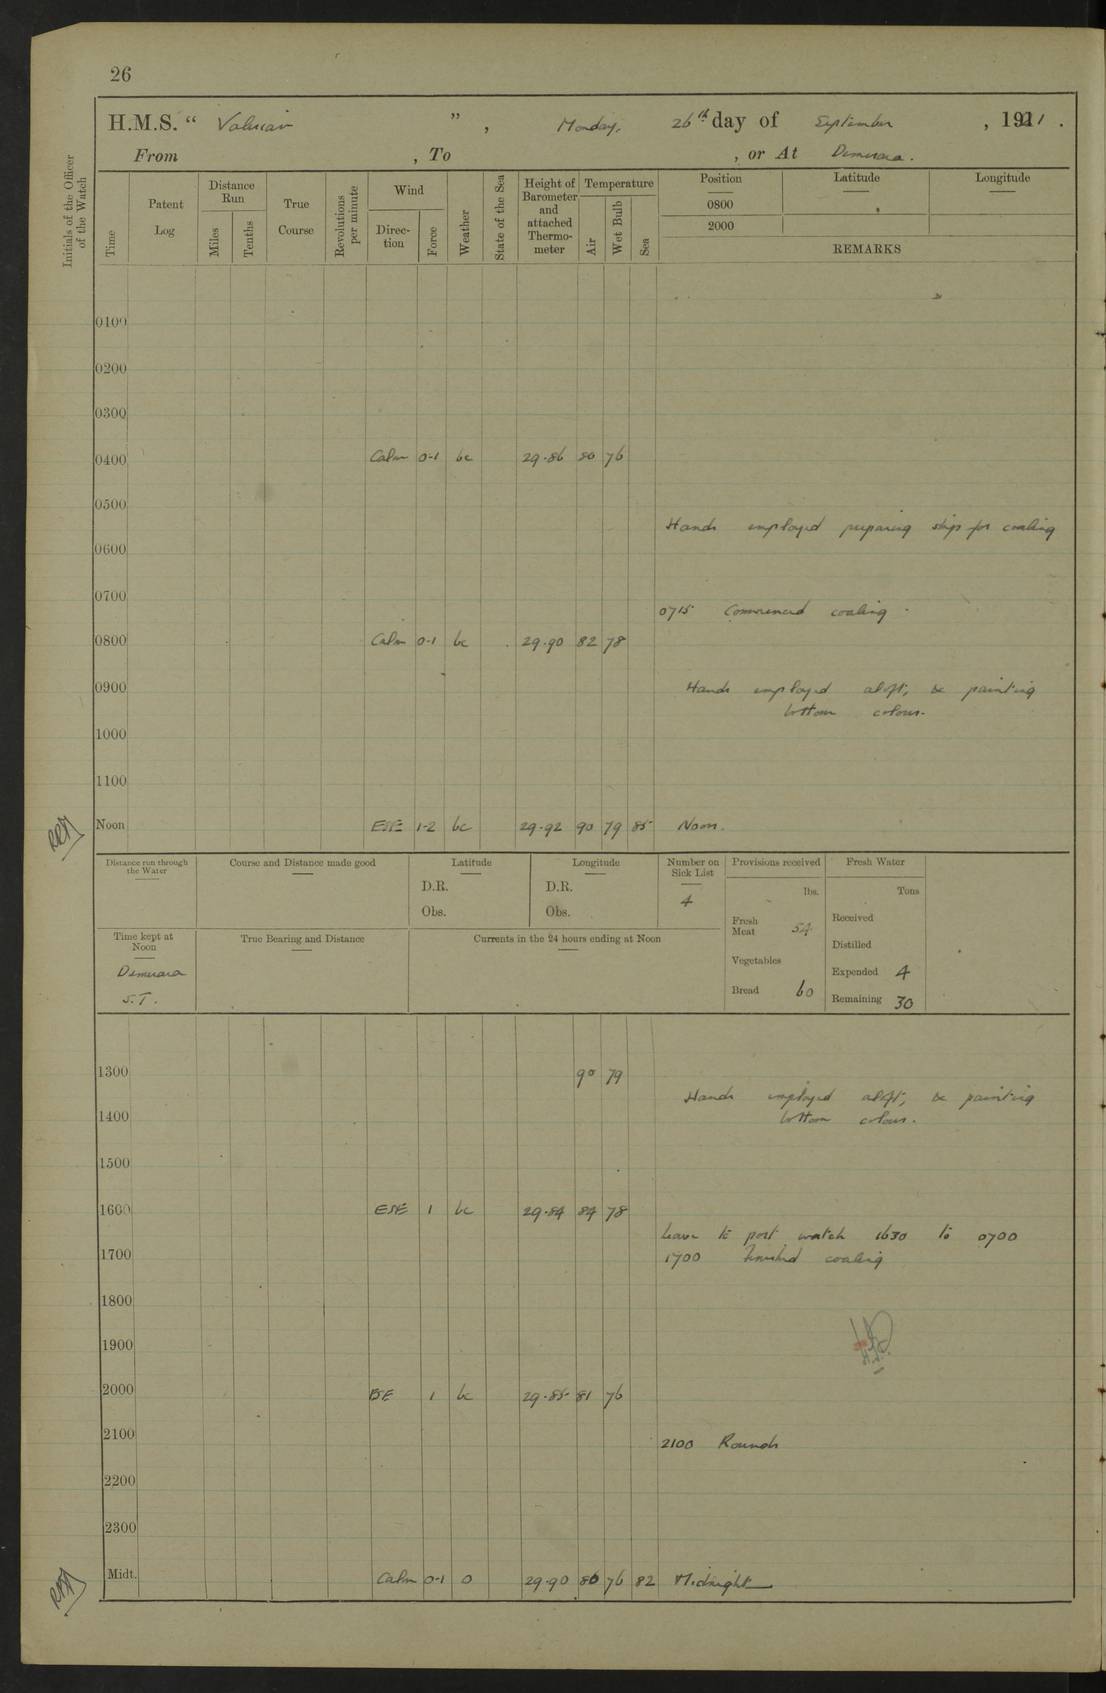 26
H.M.S. “ Valerian ” , Monday, 26th day of September , 1921 .
From , To , or At Demerara .
Initials of the Officer of the Watch
Time
Patent Log
Distance Run
Miles
Tenths
True Course
Revolutions per minute
Wind
Direc- tion
Force
Weather
State of the Sea
Height of Barometer and attached Thermo- meter
Temperature
Air
Wet Bulb
Sea
Position
Latitude
Longitude
0800
2000
REMARKS
0100
0200
0300
0400 Calm 0-1 bc 29.86 80 76
0500
Hands employed preparing ship for coaling
0600
0700
0715 Commenced coaling .
0800 Calm 0-1 bc 29.90 82 78
0900 Hands employed aloft, & painting
bottom colour.
1000
1100
Noon ESE 1-2 bc 29.92 90 79 85 Noon.
Distance run through the Water
Course and Distance made good
Latitude
D.R.
Obs.
Longitude
D.R.
Obs.
Number on Sick List
4
Provisions received
lbs.
Fresh Meat 54
Vegetables
Bread 60
Fresh Water
Tons
Received
Distilled
Expended 4
Remaining 30
Time kept at Noon
Demerara
S.T.
True Bearing and Distance
Currents in the 24 hours ending at Noon
1300 90 79
Hands employed aloft, & painting
1400 bottom colour.
1500
1600 ESE 1 bc 29.84 84 78
Leave to port watch 1630 to 0700
1700 1700 Finished coaling
1800
1900
2000 ESE 1 bc 29.85 81 76
2100 2100 Rounds
2200
2300
Midt. Calm 0-1 0 29.90 80 76 82 Midnight